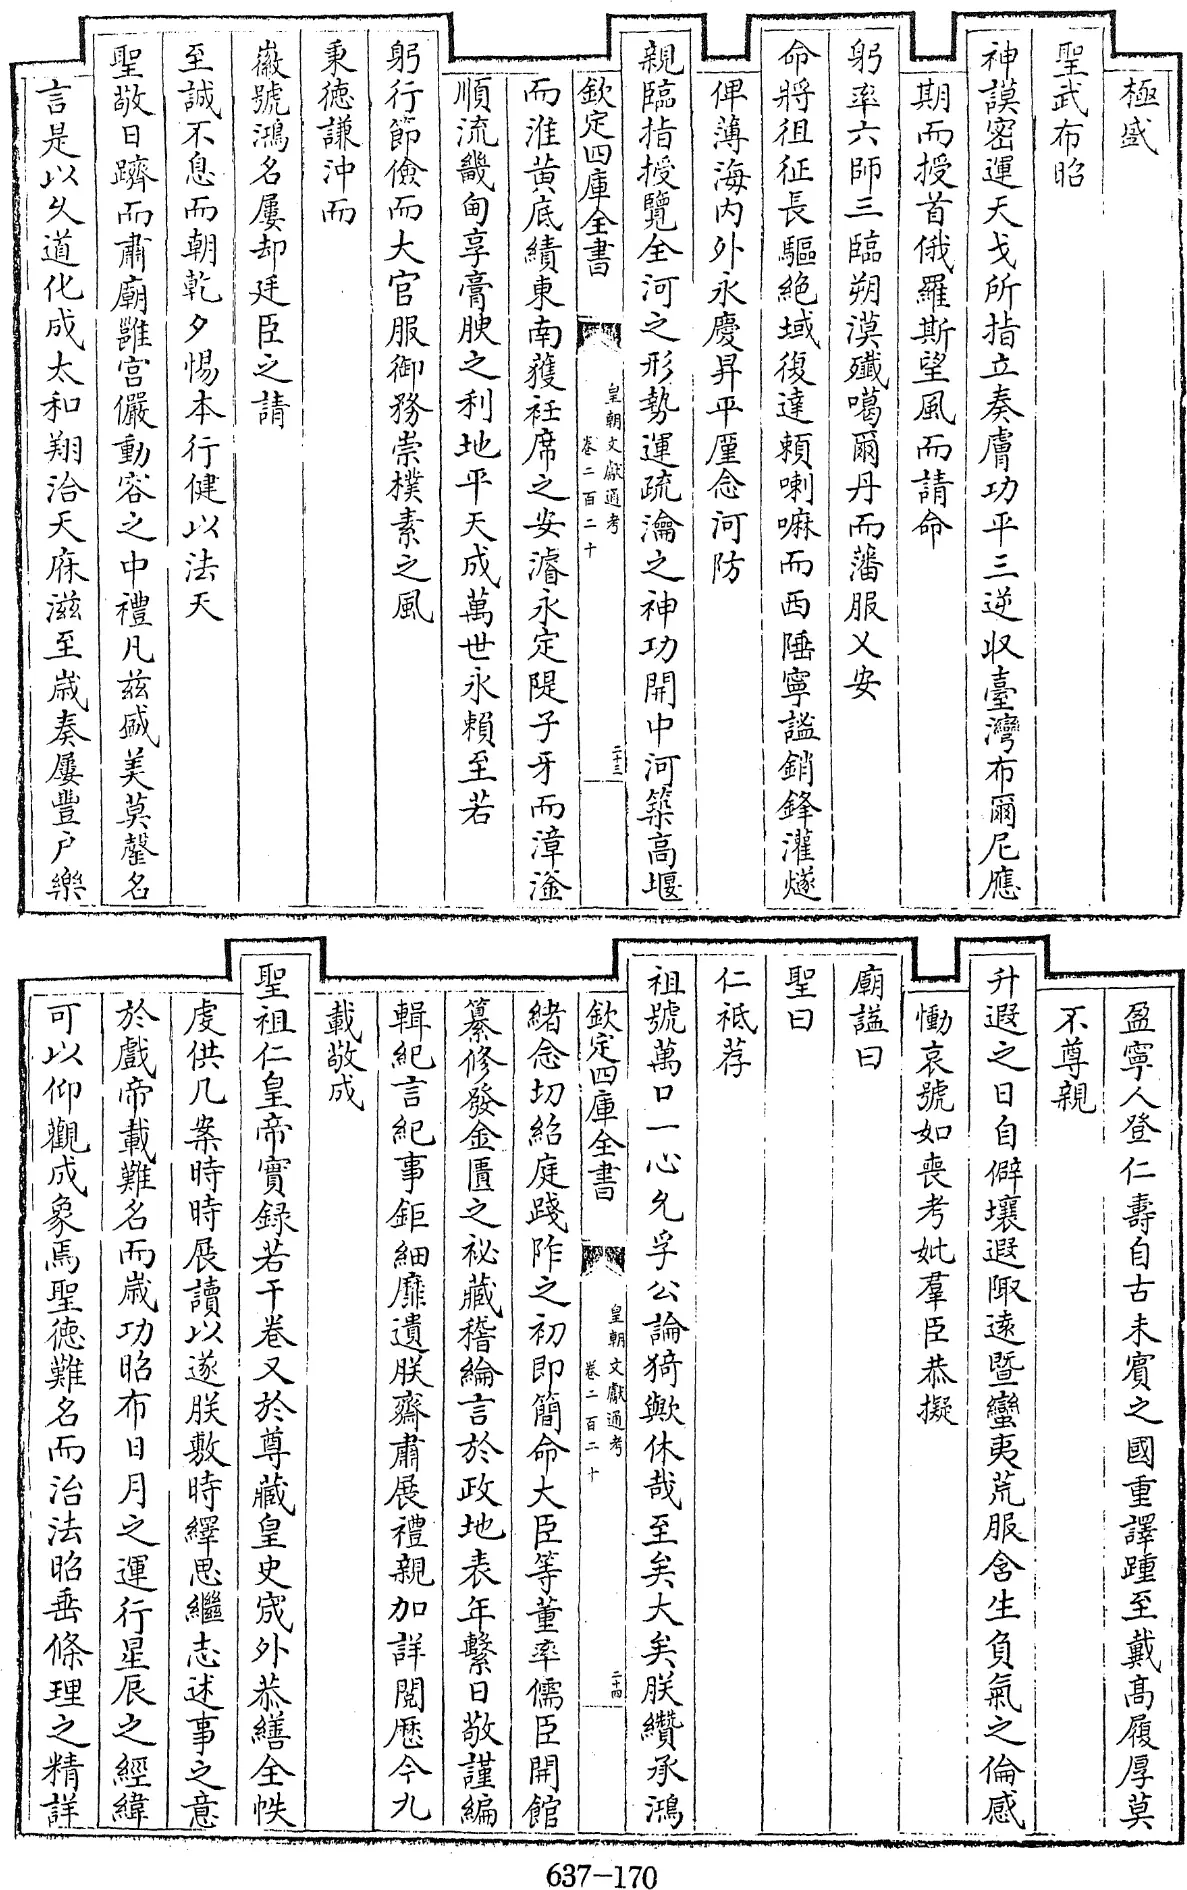 極盛
聖武布昭
神謨密運天戈所指立奏膚功平三逆収臺灣布爾尼應
期而授首俄羅斯望風而請命
躬率六師三臨朔漠殲噶爾丹而藩服乂安
命將徂征長驅絶域復達賴喇嘛而西陲寧謐銷鋒灌燧
俾薄海内外永慶昇平厪念河防
親臨指授覽全河之形勢運疏瀹之神功開中河築高堰
欽定四庫全書
皇朝文獻通考
卷二百二十
二十三
而淮黄底績東南獲袵席之安濬永定隄子牙而漳滏
順流畿甸享膏腴之利地平天成萬世永賴至若
躬行節儉而大官服御務崇樸素之風
秉德謙沖而
徽號鴻名屢却廷臣之請
至誠不息而朝乾夕惕本行健以法天
聖敬日躋而肅廟雝宫儼動容之中禮凡兹盛美莫罄名
言是以久道化成太和翔洽天庥滋至歲奏屢豐户樂
盈寧人登仁壽自古未賓之國重譯踵至戴高履厚莫
不尊親
升遐之日自僻壤遐陬遠暨蠻夷荒服含生負氣之倫感
慟哀號如喪考妣羣臣恭擬
廟諡曰
聖曰
仁祗荐
祖號萬口一心允孚公論猗歟休哉至矣大矣朕纘承鴻
欽定四庫全書
皇朝文獻通考
卷二百二十
二十四
緒念切紹庭踐阼之初即簡命大臣等董率儒臣開館
纂修發金匱之祕藏稽綸言於政地表年繫日敬謹編
輯紀言紀事鉅細靡遺朕齋肅展禮親加詳閲歴今九
載敬成
聖祖仁皇帝實録若干卷又於尊藏皇史宬外恭繕全帙
虔供几案時時展讀以遂朕敷時繹思繼志述事之意
於戲帝載難名而歲功昭布日月之運行星辰之經緯
可以仰觀成象焉聖德難名而治法昭垂條理之精詳
637-170